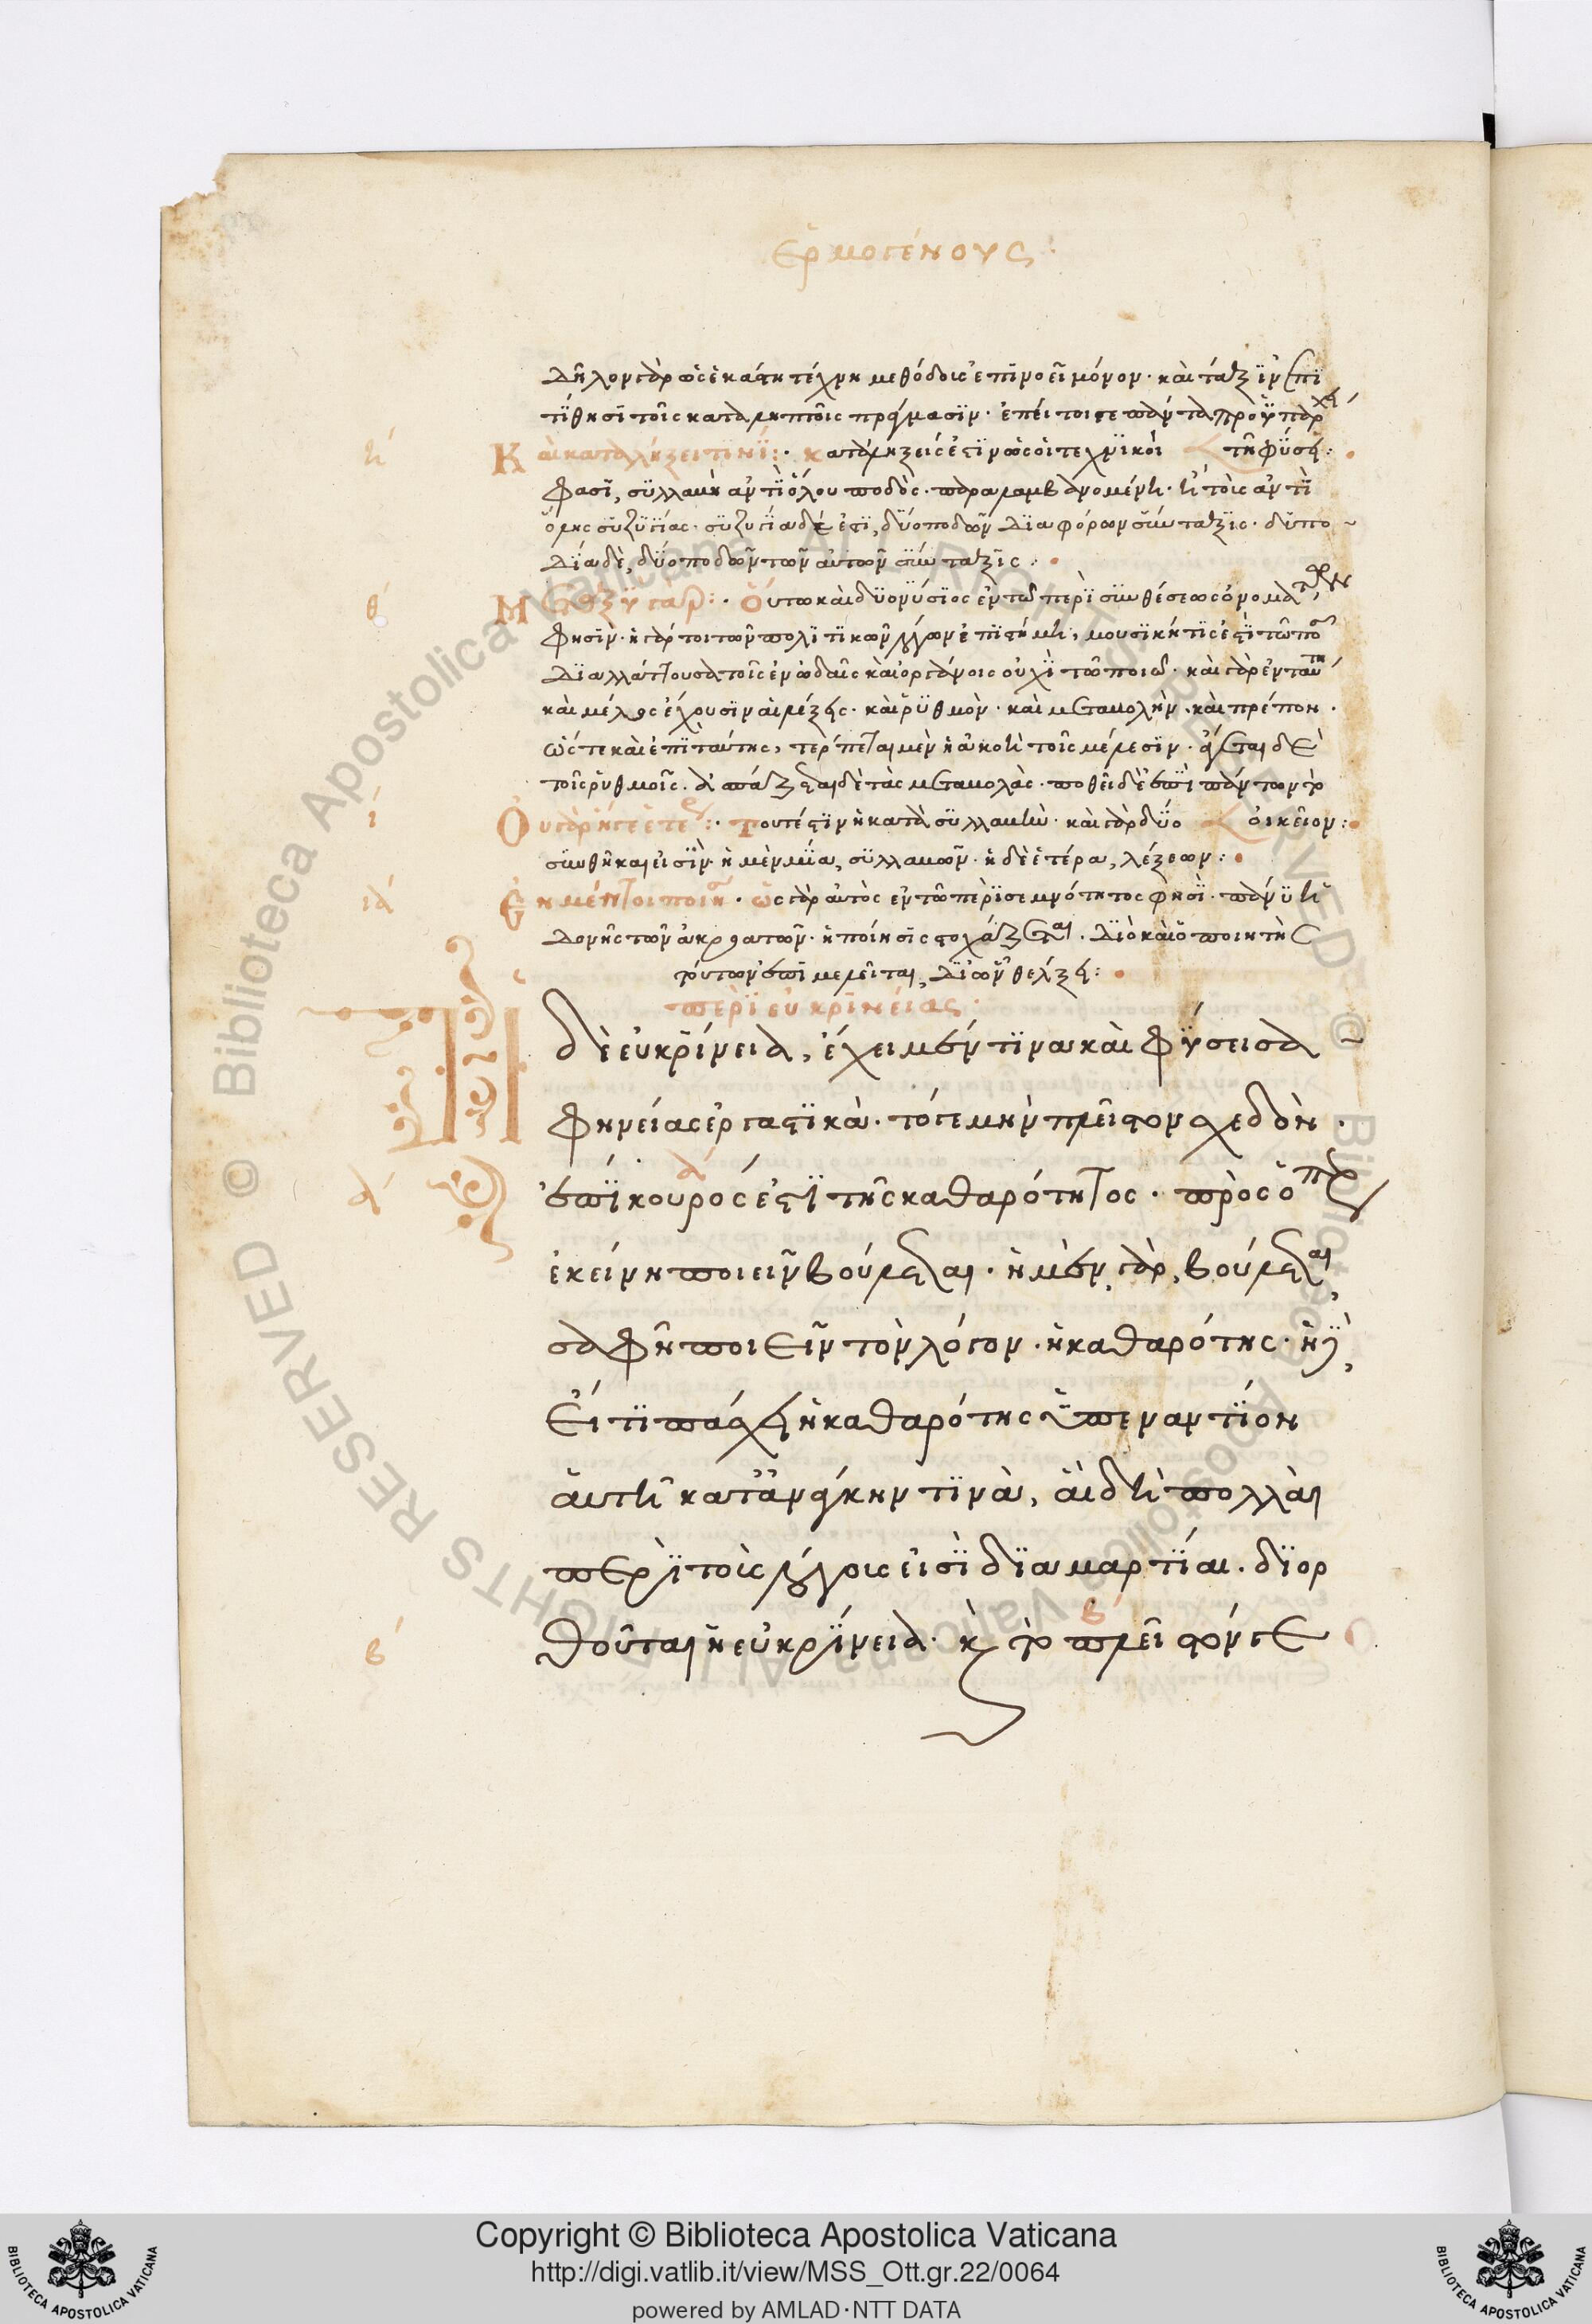 Ἑρμογένους:
δῆλον γὰρ ὡς ἑκάστη τέχνη μεθόδοις ἐπινοεῖ μόνον· καὶ τάξιν ἐπι
τίθησι τοῖς καταληπτοῖς πράγμασιν· ἐπεί τοι γε πάντα προϋπάρχει
η´ Καὶ καταλήξει τινί:· κατάληξεις ἐστιν ὡς οἱ τεχνικοὶ τῇ φύσει:·
φασί, συλλαβὴ ἀντὶ ὅλου ποδὸς· παραλαμβανομένη· ἢ τοῖς ἀντὶ
ὅλης συζυγίας· συζυγία δέ ἐστι, δύο ποδῶν διαφόρων σύνταξις· διπο
δία δὲ, δύο ποδῶν τῶν αὐτῶν σύνταξις:·
θ´ Μεταξὺ γὰρ:· Οὕτω καὶ διονύσιος ἐν τῷ περὶ συνθέσεως ὀνομάτων,
φησὶν· ἡ γάρ τοι τῶν πολιτικῶν λόγων ἐπιστήμη, μουσική τις ἐστὶ τῷ ποσῷ
διαλλάττουσα τοῖς ἐν ᾠδαῖς καὶ ὀργάνοις οὐχὶ τῷ ποιῷ· καὶ γὰρ ἐν ταύτῃ
καὶ μέλος ἔχουσιν αἱ λέξεις· καὶ ῥυθμὸν· καὶ μεταβολὴν· καὶ πρέπον·
ὥστε καὶ ἐπὶ ταύτης, τέρπεται μὲν ἡ ἀκοὴ τοῖς μέλεσιν· ἄγεται δὲ
τοῖς ῥυθμοῖς· ἀσπάζεται δὲ τὰς μεταβολὰς· ποθεῖ δὲ ἐπὶ πάντων τὸ
ι´ Οὐ γὰρ ἥγε ἑτέρα:· Τουτέστιν ἡ κατὰ συλλαβὴν· καὶ γὰρ δύο οἰκεῖον:·
συνθῆκαι εἰσὶν· ἡ μὲν μία, συλλαβῶν· ἡ δὲ ἑτέρα, λέξεων:·
ια´ Ἐν μέντοι ποιή· ὡς γὰρ αὐτὸς ἐν τῷ περὶ σεμνότητος φησὶ· πάνυ ἡ
δονῆς τῶν ἀκροατῶν· ἡ ποίησις στοχάζεται· διὸ καὶ ὁ ποιητὴς
τούτων ἐπιμελεῖται, δι᾽ ὧν θέλξει:·
περὶ εὐκρινείας·
α´ Ἡ δὲ εὐκρίνεια, ἔχει μέν τινα καὶ φύσει σα
φηνείας ἐργαστικὰ· τό γε μὴν πλεῖστον σχεδὸν·
ἐπίκουρος ἐστὶ τῆς καθαρότητος· πρὸς ὅπερ
ἐκείνη ποιεῖν βούλεται· ἡ μὲν γὰρ, βούλεται,
σαφῆ ποιεῖν τὸν λόγον· ἡ καθαρότης· ἢν,
εἴ τι πάσχει ἡ καθαρότης ὑπεναντίον
αὐτῇ κατ᾽ ἀνάγκην τινὰ, οἷα δὴ πολλαὶ
περὶ τοῖς λόγοις εἰσὶ διαμαρτίαι· διορ
β´ θοῦται ἡ εὐκρίνεια· καὶ τὸ πλεῖστόν γε
Copyright © Biblioteca Apostolica Vaticana
http://digi.vatlib.it/view/MSS_Ott.gr.22/0064
powered by AMLAD·NTT DATA